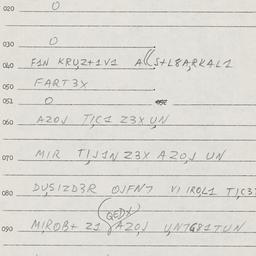 020 O
030 O
040 F1N KRUZ+1V1 A((S+L8A,RKAL1
050 FART3X
051 O
060 AZOJ T,C1 Z3X U,N
070 MIR T,J1N Z3X AZOJ UN
080 DU,S1ZD3R OJFN7 V1 IRQL1 T,C3
QEDX
090 M,ROB+ Z1 AZOJ U,N7G81TUN